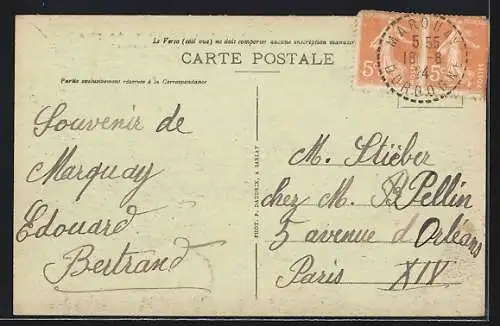 Le Verso (côté vue) ne doit comporter aucune inscription manuscrite
CARTE POSTALE
Partie exclusivement réservée à la Correspondance
MARQUAY
5 55
18 8
24
DORDOGNE
5
5
PHOT. P. DAUDRIX, A SARLAT
Souvenir de
Marquay
Edouard
Bertrand
M. Stieber
chez M. B Pellin
5 avenue d'Orléans
Paris XIV